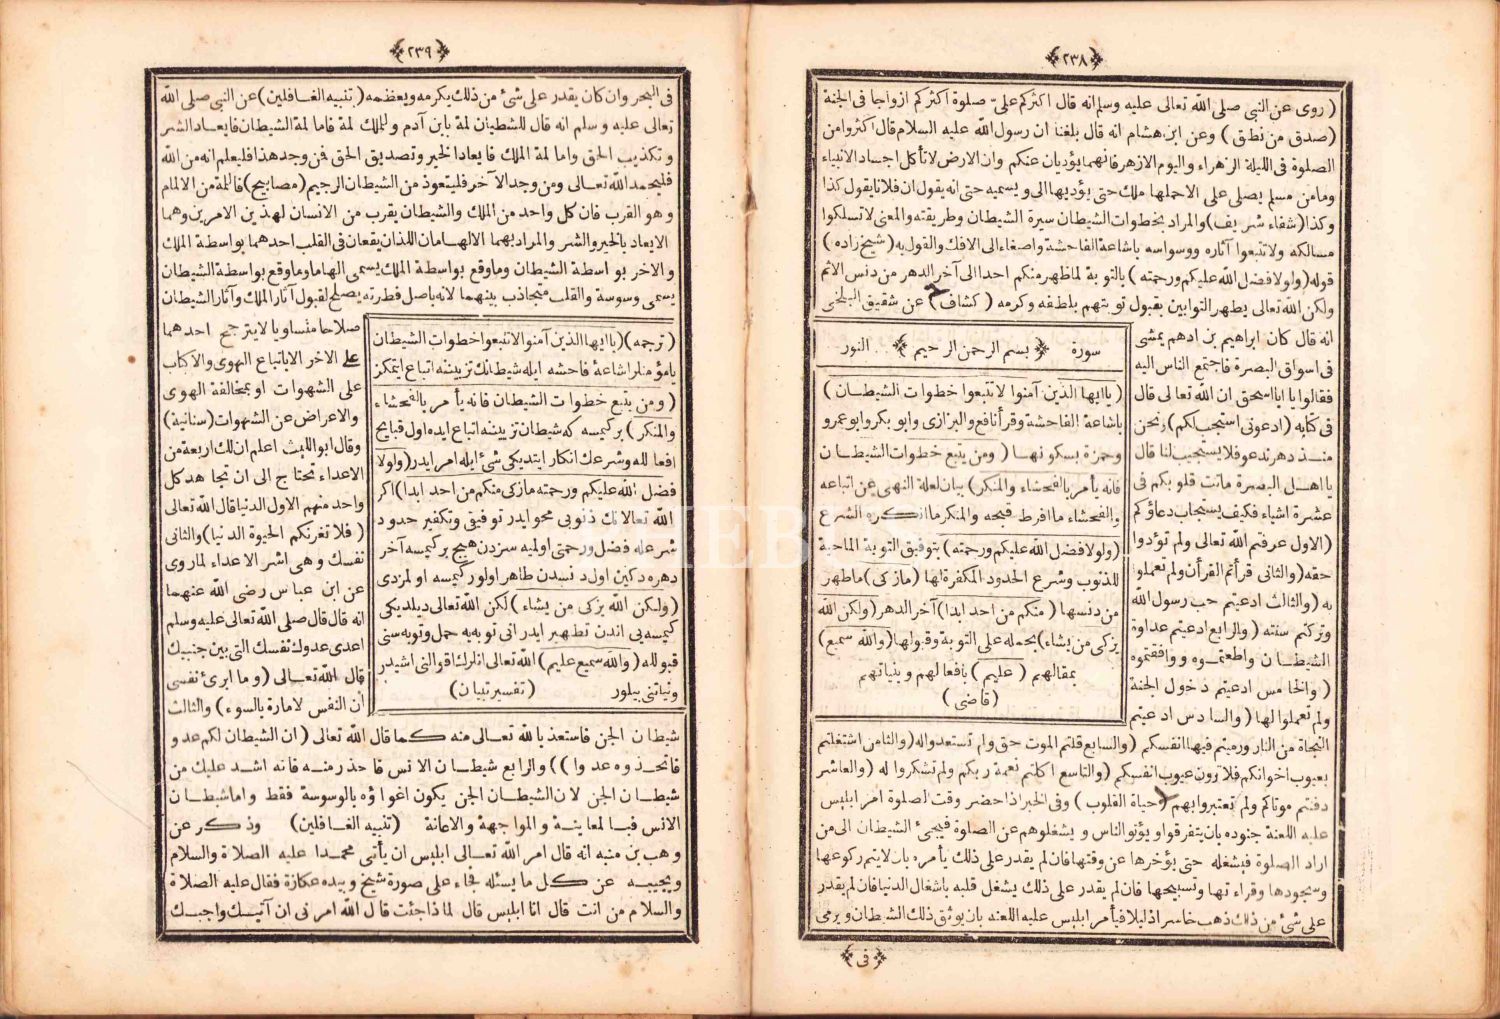 ﴿٢٣٨﴾
( روى عن النبى صلى الله تعالى عليه وسلم انه قال اكثركم علىّ صلوة اكثركم ازواجا فى الجنة
(صدق من نطق ) وعن ابن هشام انه قال بلغنا ان رسول الله عليه السلام قال اكثروا من
الصلوة فى الليلة الزهراء واليوم الازهر فانهما يؤديان عنكم وان الارض لا تأكل اجساد الانبياء
ومامن مسلم يصلى على الاحملها ملك حتى يؤديها الى ويسميه حتى انه يقول ان فلانا يقول كذا
وكذا (شفاء شريف) والمراد بخطوات الشيطان سيرة الشيطان وطريقته والمعنى لاتسلكوا
مسالكه ولا تتبعوا آثاره ووسواسه باشاعة الفاحشة واصغاء الى الافك والقول به (شيخ زاده)
قوله (ولولا فضل الله عليكم ورحمته ) بالتوبة لما ظهر منكم احدا الى آخر الدهر من دنس الاثم
ولكن الله تعالى يطهر التوابين بقبول توبتهم بلطفه وكرمه ( كشاف ) عن شقيق البلخى
انه قال كان ابراهيم بن ادهم يمشى
فى اسواق البصرة فاجتمع الناس اليه
فقالوا يا ابا اسحق ان الله تعالى قال
فى كتابه (ادعونى استجب لكم) ونحن
منذ دهر ندعو فلا يستجيب لنا قال
يا اهل البصرة ماتت قلوبكم فى
عشرة اشياء فكيف يستجاب دعاؤكم
(الاول عرفتم الله تعالى ولم تؤدوا
حقه (والثانى قرأتم القرأن ولم تعملوا
به (والثالث ادعيتم حب رسول الله
وتركتم سنته (والرابع ادعيتم عداوة
الشيطان واطعتموه ووافقتموه
(والخامس ادعيتم دخول الجنة
ولم تعملوا لها (والسادس ادعيتم
سورة ﴿ بسم الرحمن الرحيم ﴾ النور
(يا ايها الذين آمنوا لا تتبعوا خطوات الشيطان )
باشاعة الفاحشة وقرأ نافع والبزازى وابو بكر وابو عمرو
وحمزة بسكونها ( ومن يتبع خطوات الشيطان
فانه يأمر بالفحشاء والمنكر) بيان لعلة النهى عن اتباعه
والفحشاء ما افرط قبحه والمنكر ما انكره الشرع
(ولولا فضل الله عليكم ورحمته ) بتوفيق التوبة الماحية
للذنوب وشرع الحدود المكفرة لها (ما زكى) ما طهر
من دنسها ( منكم من احد ابدا) آخر الدهر (ولكن الله
يزكى من يشاء) بحمله على التوبة وقبولها (والله سميع)
بمقالهم ( عليم ) بافعالهم وبنياتهم
(قاضى )
النجاة من النار ورميتم فيها انفسكم (والسابع قلتم الموت حق ولم تستعدوا له (والثامن اشتغلتم
بعيوب اخوانكم فلا ترون عيوب انفسكم (والتاسع اكلتم نعمة ربكم ولم تشكروا له (والعاشر
دفنتم موتاكم ولم تعتبروا بهم (حياة القلوب ) وفى الخبر اذا حضر وقت الصلوة امر ابليس
عليه اللعنة جنوده بان يتفرقوا ويؤتوا الناس ويشغلوهم عن الصلوة فيجئ الشيطان الى من
اراد الصلوة فيشغله حتى يؤخرها عن وقتها فان لم يقدر على ذلك يأمره بان لا يتم ركوعها
وسجودها وقراءتها وتسبيحها فان لم يقدر على ذلك يشغل قلبه باشغال الدنيا فان لم يقدر
على شئ من ذلك ذهب خاسرا ذليلا فيأمر ابليس عليه اللعنه بان يوثق ذلك الشيطان ويرمى
﴿فى﴾
﴿٢٣٩﴾
فى البحر وان كان يقدر على شئ من ذلك يكرمه ويعظمه ( تنبيه الغافلين) عن النبى صلى الله
تعالى عليه وسلم انه قال للشطيان لمة بابن آدم وللملك لمة فاما لمة الشيطان فايعاد الشر
وتكذيب الحق واما لمة الملك فايعاد الخير وتصديق الحق فمن وجد هذا فليعلم انه من الله
فليحمد الله تعالى ومن وجد الآخر فليتعوذ من الشيطان الرجيم (مصابيح) فاللمة من الالمام
وهو القرب فان كل واحد من الملك والشيطان يقرب من الانسان لهذين الامرين وهما
الايعاد بالخير والشر والمراد بهما الالهامان اللذان يقعان فى القلب احدهما بواسطة الملك
والاخر بواسطة الشيطان وما وقع بواسطة الملك يسمى الهاما وما وقع بواسطة الشيطان
يسمى وسوسة والقلب متجاذب بينهما لانه باصل فطرته يصلح لقبول آثار الملك وآثار الشيطان
صلاحا متساويا لا يترجح احدهما
على الاخر الا باتباع الهوى والاكاب
على الشهوات او بمخالفة الهوى
والاعراض عن الشهوات (سنانية)
وقال ابو الليث اعلم ان لك اربعة من
الاعداء تحتاج الى ان تجاهد كل
واحد منهم الاول الدنيا قال الله تعالى
( فلا تغرنكم الحيوة الدنيا) والثانى
نفسك وهى اشر الاعداء لما روى
عن ابن عباس رضى الله عنهما
انه قال قال صلى الله تعالى عليه وسلم
اعدى عدوك نفسك التى بين جنبيك
قال الله تعالى ( وما ابرئ نفسى
ان النفس لامارة بالسوء) والثالث
( ترجمه) (يا ايها الذين آمنوا لا تتبعوا خطوات الشيطان
يا مؤمنلر اشاعة فاحشه ايله شيطانك تزييننه اتباع ايتمكز
( ومن يتبع خطوات الشيطان فانه يأمر بالفحشاء
والمنكر) بر كيمسه كه شيطان تزييننه اتباع ايده اول قبايح
افعالله وشرعك انكار ايتديكى شئ ايله امر ايدر (ولولا
فضل الله عليكم ورحمته ما زكى منكم من احد ابدا) اكر
الله تعالانك ذنوبى محو ايدر توفيق وتكفير حدود
شرعله فضل ورحمتى اولميه سزدن هيچ بر كيمسه آخر
دهره دكين اولدنسدن طاهر اولور كيمسه اولمزدى
(ولكن الله يزكى من يشاء ) لكن الله تعالى ديلديكى
كيمسه يى اندن تطهير ايدر انى توبه يه حمل وتوبه سنى
قبولله (والله سميع عليم ) الله تعالى انلرك اقوالنى اشيدر
ونياتنى بيلور ( تفسير تبيان )
شيطان الجن فاستعذ بالله تعالى منه كما قال الله تعالى ( ان الشيطان لكم عدو
فاتخذوه عدوا )) والرابع شيطان الانس فاحذر منه فانه اشد عليك من
شيطان الجن لان الشيطان الجن يكون اغواؤه بالوسوسة فقط واما شيطان
الانس فبالمعاينة والمواجهة والاعانة (تنبيه الغافلين) وذكر عن
وهب بن منبه انه قال امر الله تعالى ابليس ان يأتى محمدا عليه الصلاة والسلام
ويجيبه عن كل ما يسئله فجاء على صورة شيخ وبيده عكازة فقال عليه الصلاة
والسلام من انت قال انا ابليس قال لما ذا جئت قال الله امرنى ان آتيك واجيبك